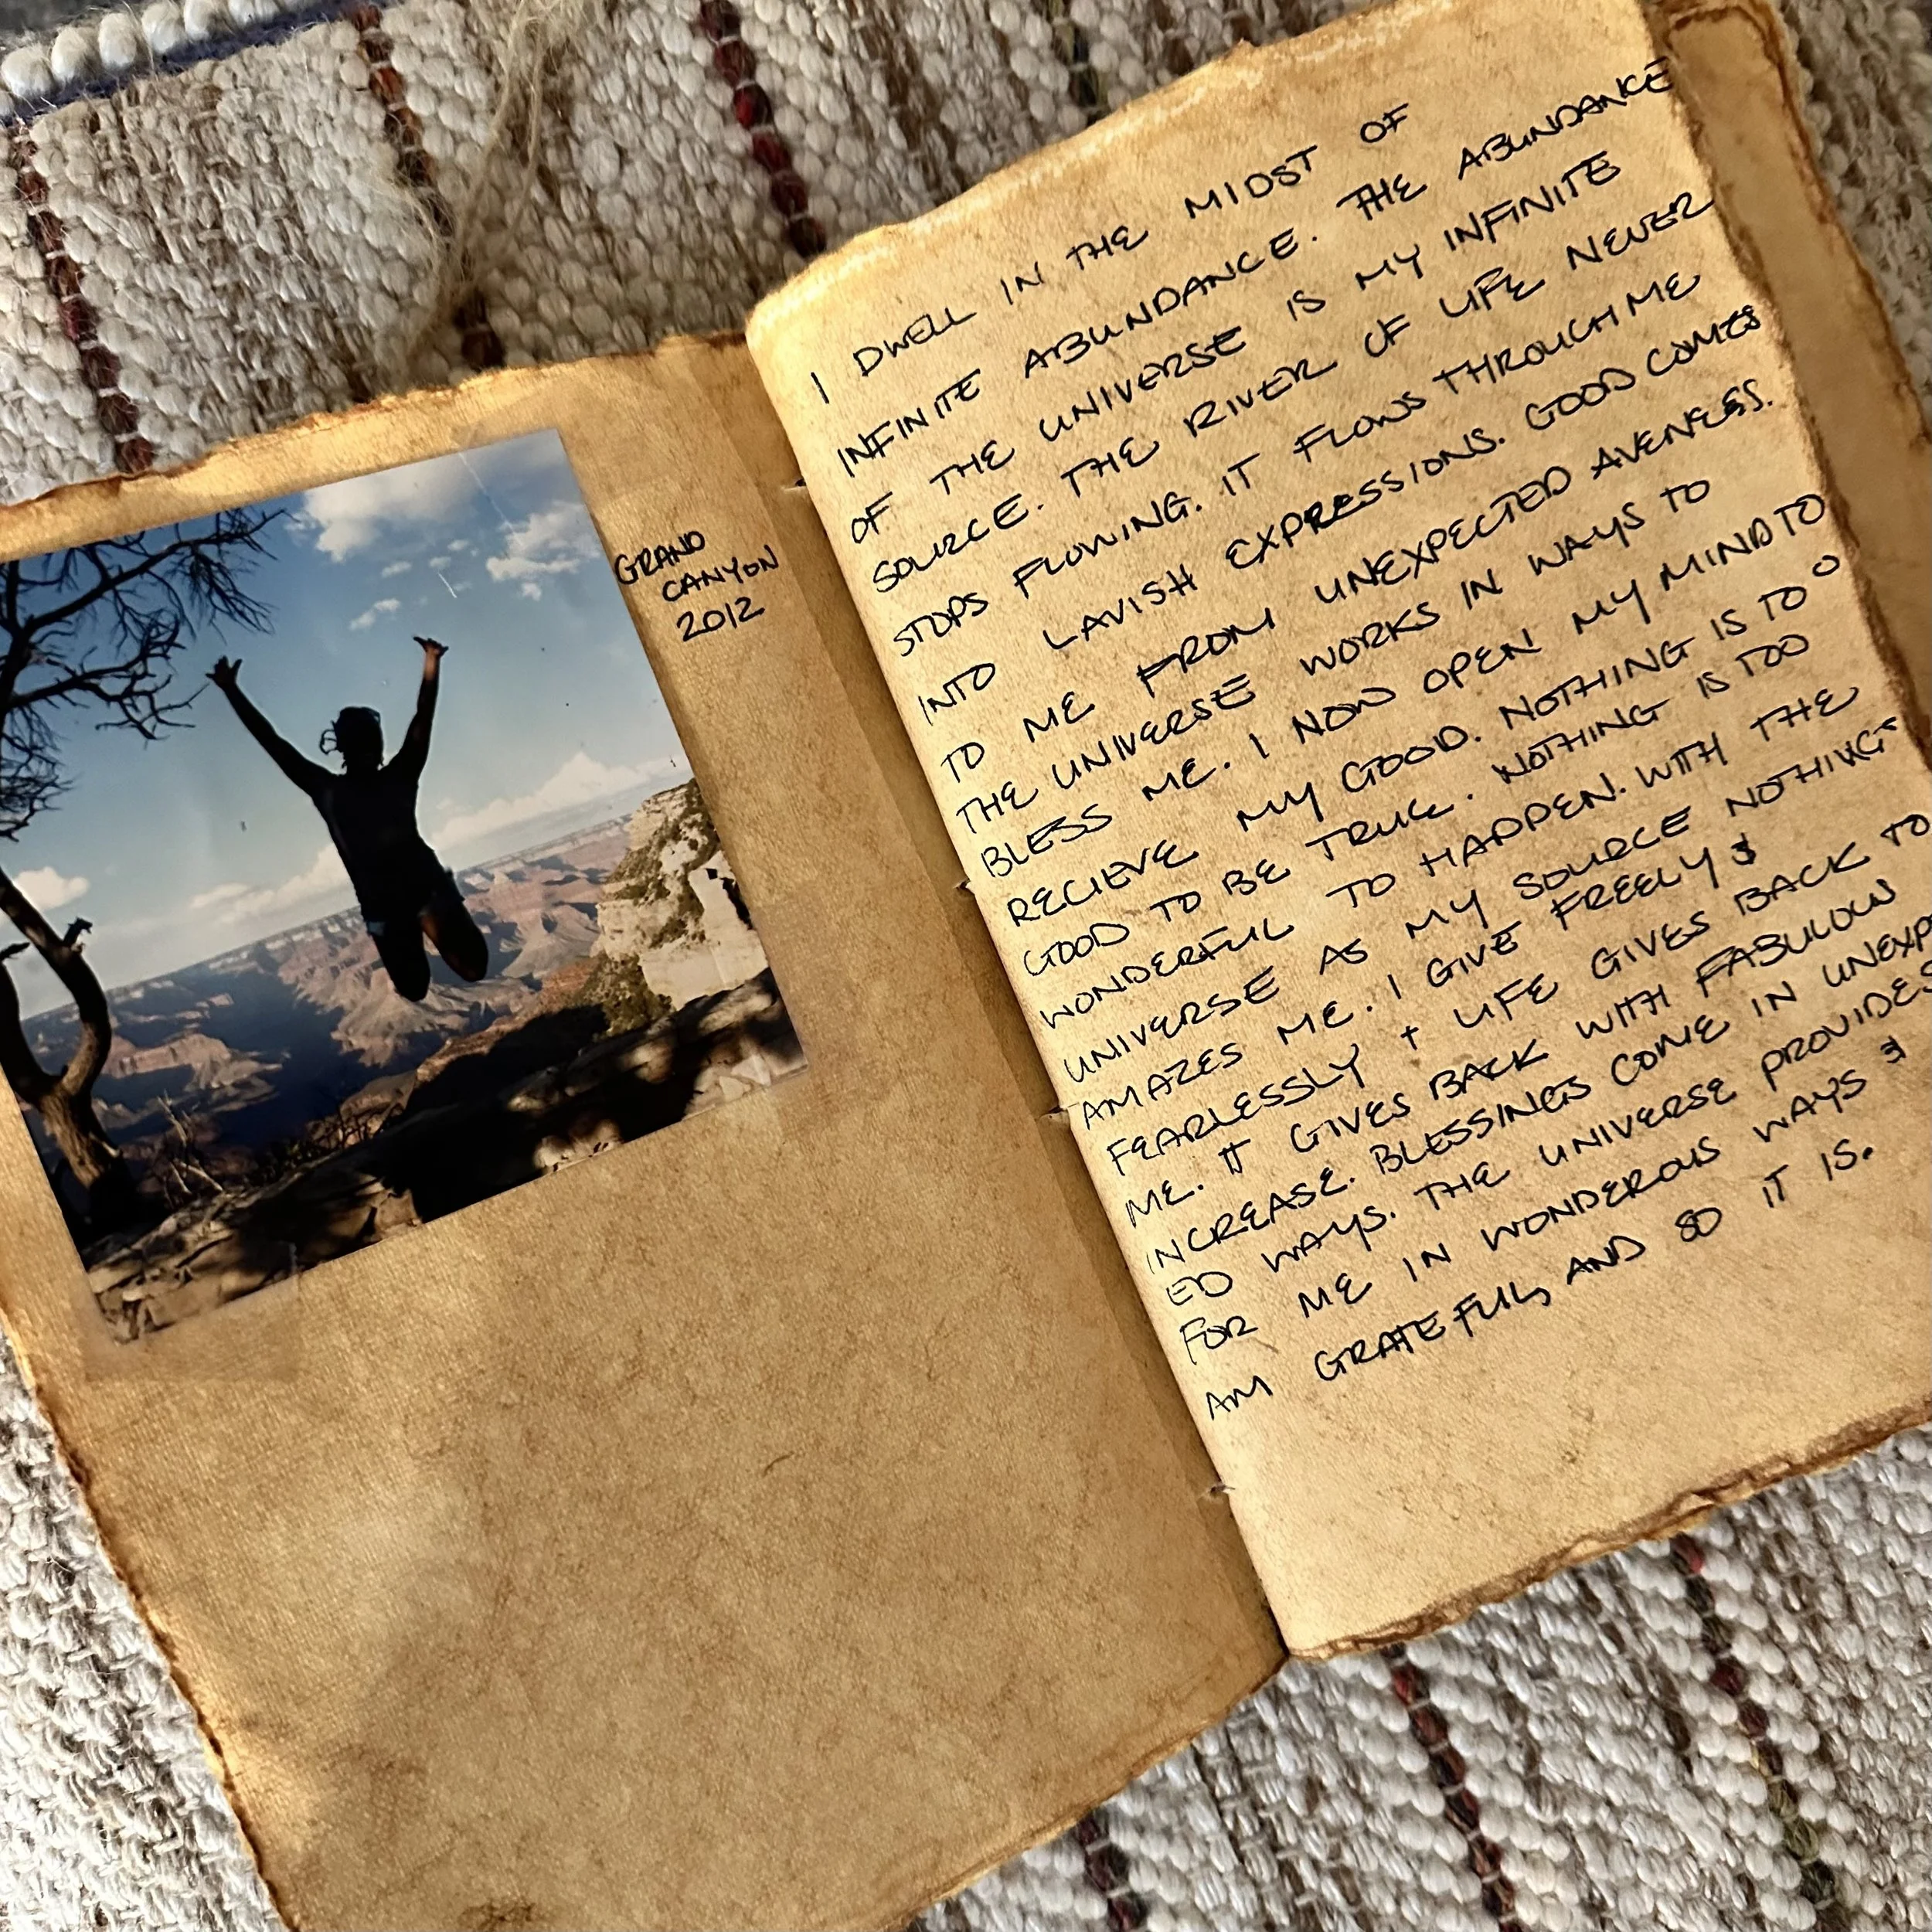 GRAND
CANYON
2012
I DWELL IN THE MIDST OF
INFINITE ABUNDANCE. THE ABUNDANCE
OF THE UNIVERSE IS MY INFINITE
SOURCE. THE RIVER OF LIFE NEVER
STOPS FLOWING. IT FLOWS THROUGH ME
INTO LAVISH EXPRESSIONS. GOOD COMES
TO ME FROM UNEXPECTED AVENESS.
THE UNIVERSE WORKS IN WAYS TO
BLESS ME. I NOW OPEN MY MIND TO
RECIEVE MY GOOD. NOTHING IS TO O
GOOD TO BE TRUE. NOTHING IS TOO
WONDERFUL TO HAPPEN. WITH THE
UNIVERSE AS MY SOURCE NOTHING
AMAZES ME. I GIVE FREELY &
FEARLESSLY + LIFE GIVES BACK TO
ME. IT GIVES BACK WITH FABULOUS
INCREASE. BLESSINGS COME IN UNEXP
ED WAYS. THE UNIVERSE PROVIDES
FOR ME IN WONDEROUS WAYS &
AM GRATEFUL, AND SO IT IS.